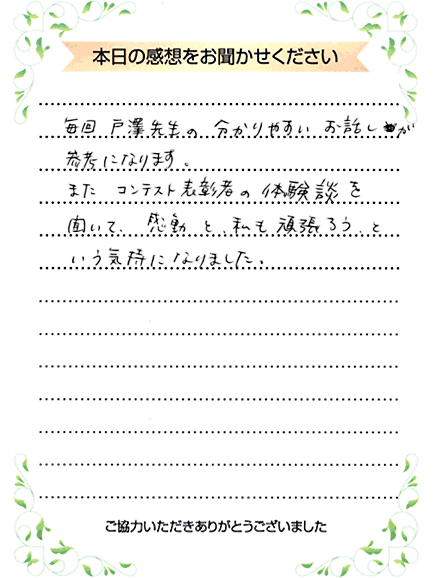 本日の感想をお聞かせください
毎回 戸澤先生の 分かりやすい お話しが
参考になります。
また コンテスト表彰者の 体験談を
聞いて、感動 と、私も 頑張ろう、と
いう気持になりました。
ご協力いただきありがとうございました